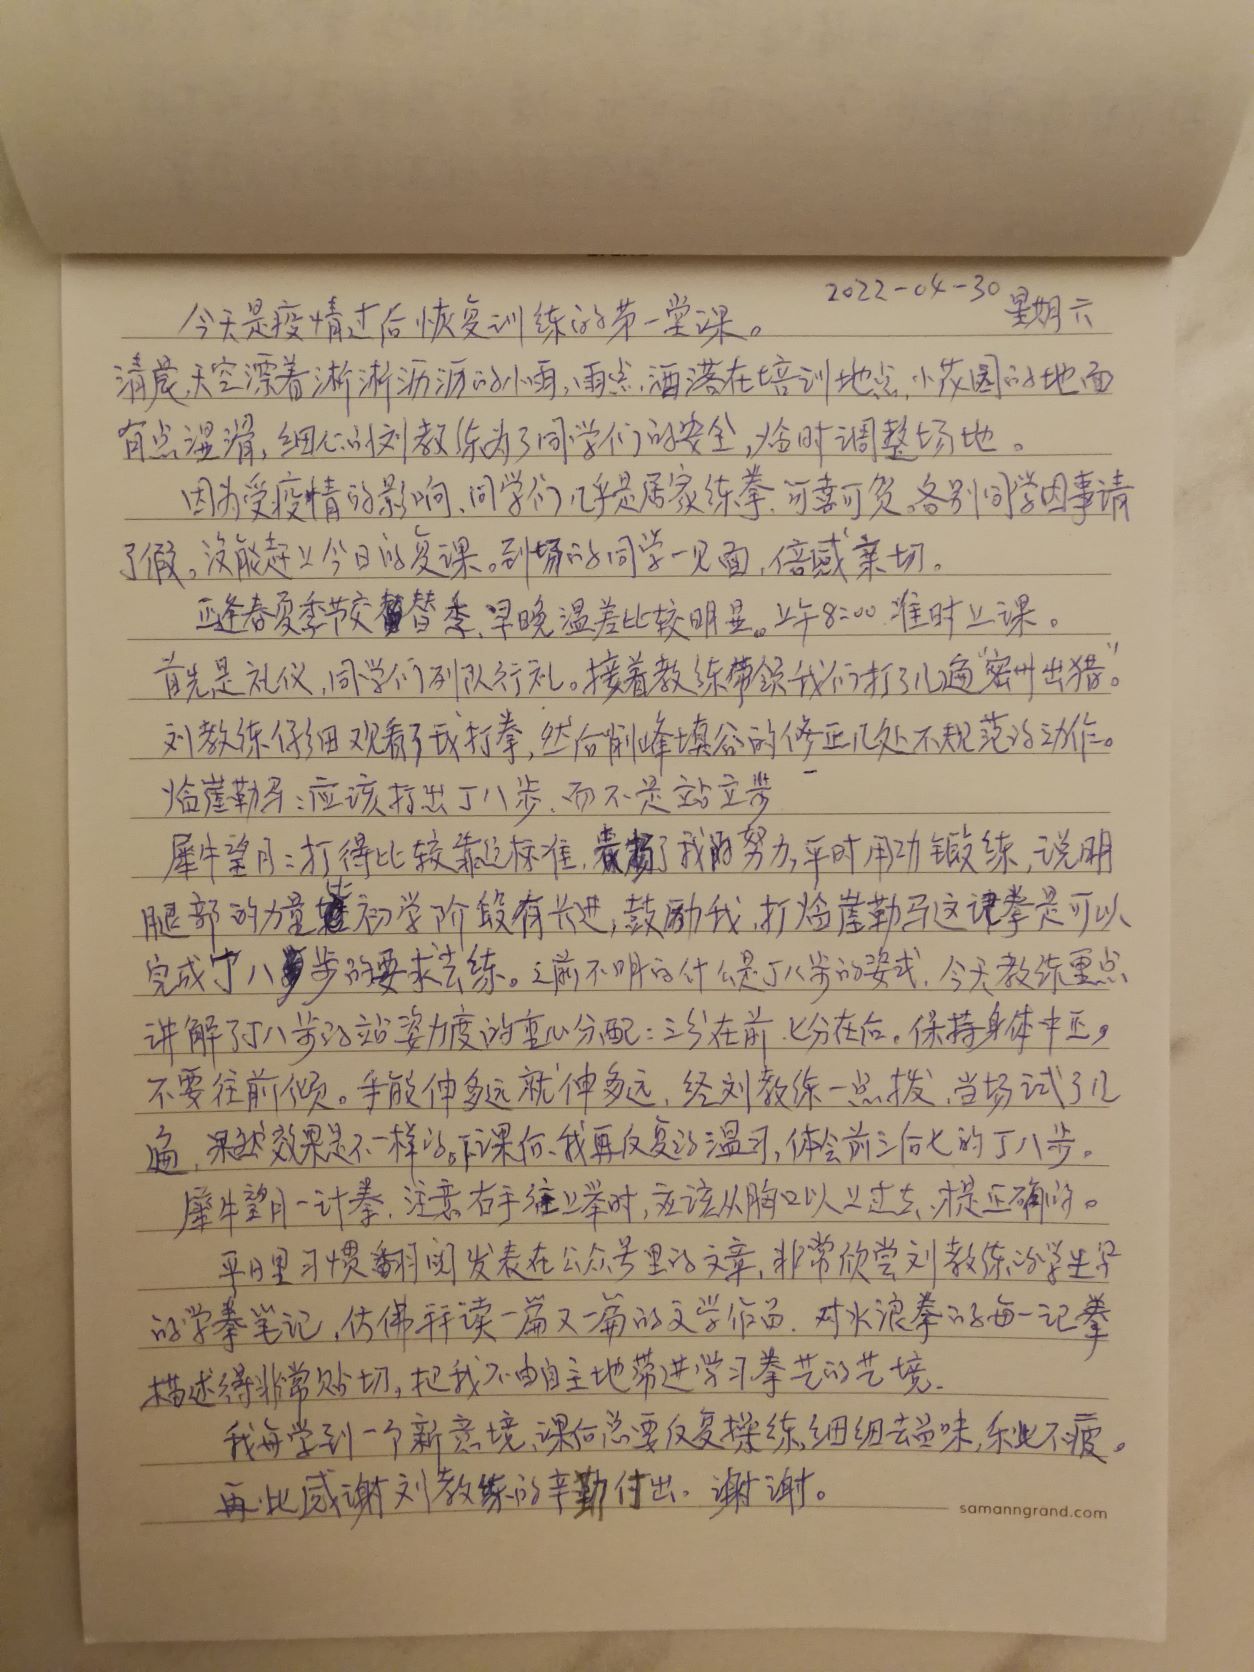 2022-04-30 星期六
今天是疫情过后恢复训练的第一堂课。
清晨,天空漂着淅淅沥沥的小雨,雨点,洒落在培训地点,小花园的地面
有点湿滑,细心的刘教练为了同学们的安全,临时调整场地。
因为受疫情的影响、同学们几乎是居家练拳,可喜可贺。各别同学因事请
了假。没能赶上今日的复课。到场的同学一见面,倍感亲切。
正逢春夏季节交替季,早晚温差比较明显。上午8:00准时上课。
首先是礼仪,同学们列队行礼。接着教练带领我们打了几遍“密州出猎”。
刘教练仔细观看了我打拳,然后削峰填谷的修正几处不规范的动作。
临崖勒马:应该打出丁八步,而不是站立步
犀牛望月:打得比较靠近标准,表扬了我的努力,平时用功锻练,说明
腿部的力量 初学阶段有长进,鼓励我,打临崖勒马这记拳是可以
完成丁八步的要求去练。之前不明的什么是丁八步的姿式,今天教练重点
讲解了丁八步的站姿力度的重心分配:三分在前、七分在后。保持身体中正,
不要往前倾。手能伸多远就伸多远,经刘教练一点拨,当场试了几
遍,果然效果是不一样的。下课后、我再反复的温习,体会前三后七的丁八步。
犀牛望月一计拳,注意右手往上举时,应该从胸口以上过去,才是正确的。
平日里习惯翻阅发表在公众号里的文章,非常欣尝刘教练的学生写
的学拳笔记,仿佛拜读一篇又一篇的文学作品,对水浪拳的每一记拳
描述得非常贴切,把我不由自主地带进学习拳艺的艺境.
我每学到一个新意境,课后总要反复操练,细细去益味,乐此不疲。
再此感谢刘教练的辛勤付出.谢谢。
samanngrand.com